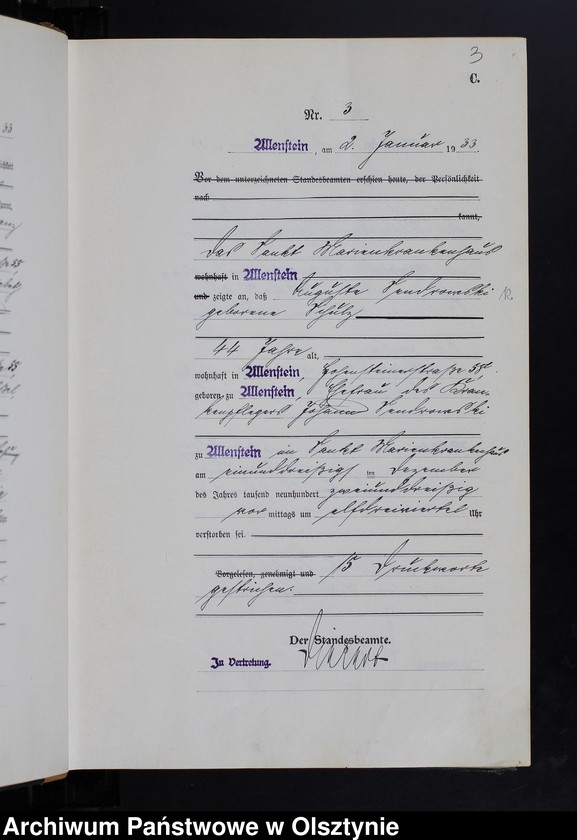 3
C.
Nr. 3
Allenstein, am 2. Januar 1933.
Vor dem unterzeichneten Standesbeamten erschien heute, der Persönlichkeit
nach
kannt,
Das Sankt Marienkrankenhaus
wohnhaft in Allenstein
und zeigte an, daß Auguste Sendrowski
geborene Schulz
44 Jahre alt,
wohnhaft in Allenstein, Hohensteinerstraße 55
geboren zu Allenstein, Ehefrau des Kran-
kenpflegers Johann Sendrowski
zu Allenstein im Sankt Marienkrankenhaus
am einunddreißigsten Dezember
des Jahres tausend neunhundert zweiunddreißig
vor mittags um elfdreiviertel Uhr
verstorben sei.
Vorgelesen, genehmigt und 15 Druckworte
gestrichen.
Der Standesbeamte.
In Vertretung.
Archiwum Państwowe w Olsztynie